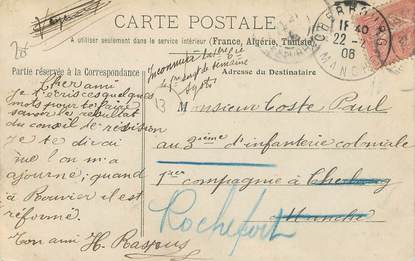 CARTE POSTALE
A utiliser seulement dans le service intérieur (France, Algérie, Tunisie)
Partie réservée à la Correspondance
Adresse du Destinataire
CHERBOURG
1F 40
22 -2
06
MANCHE
Inconnu à
13
Cher ami
Je t'écris ces quelques
mots pour te faire
savoir le resultat
du conseil de révision
Je te dirai
que l on m'a
ajourné; quand
à Rouvier il est
réformé.
Ton ami H. Raspus
Monsieur Coste Paul
au 2ième d'infanterie coloniale
1ère compagnie à Cherbourg
Manche
Rochefort